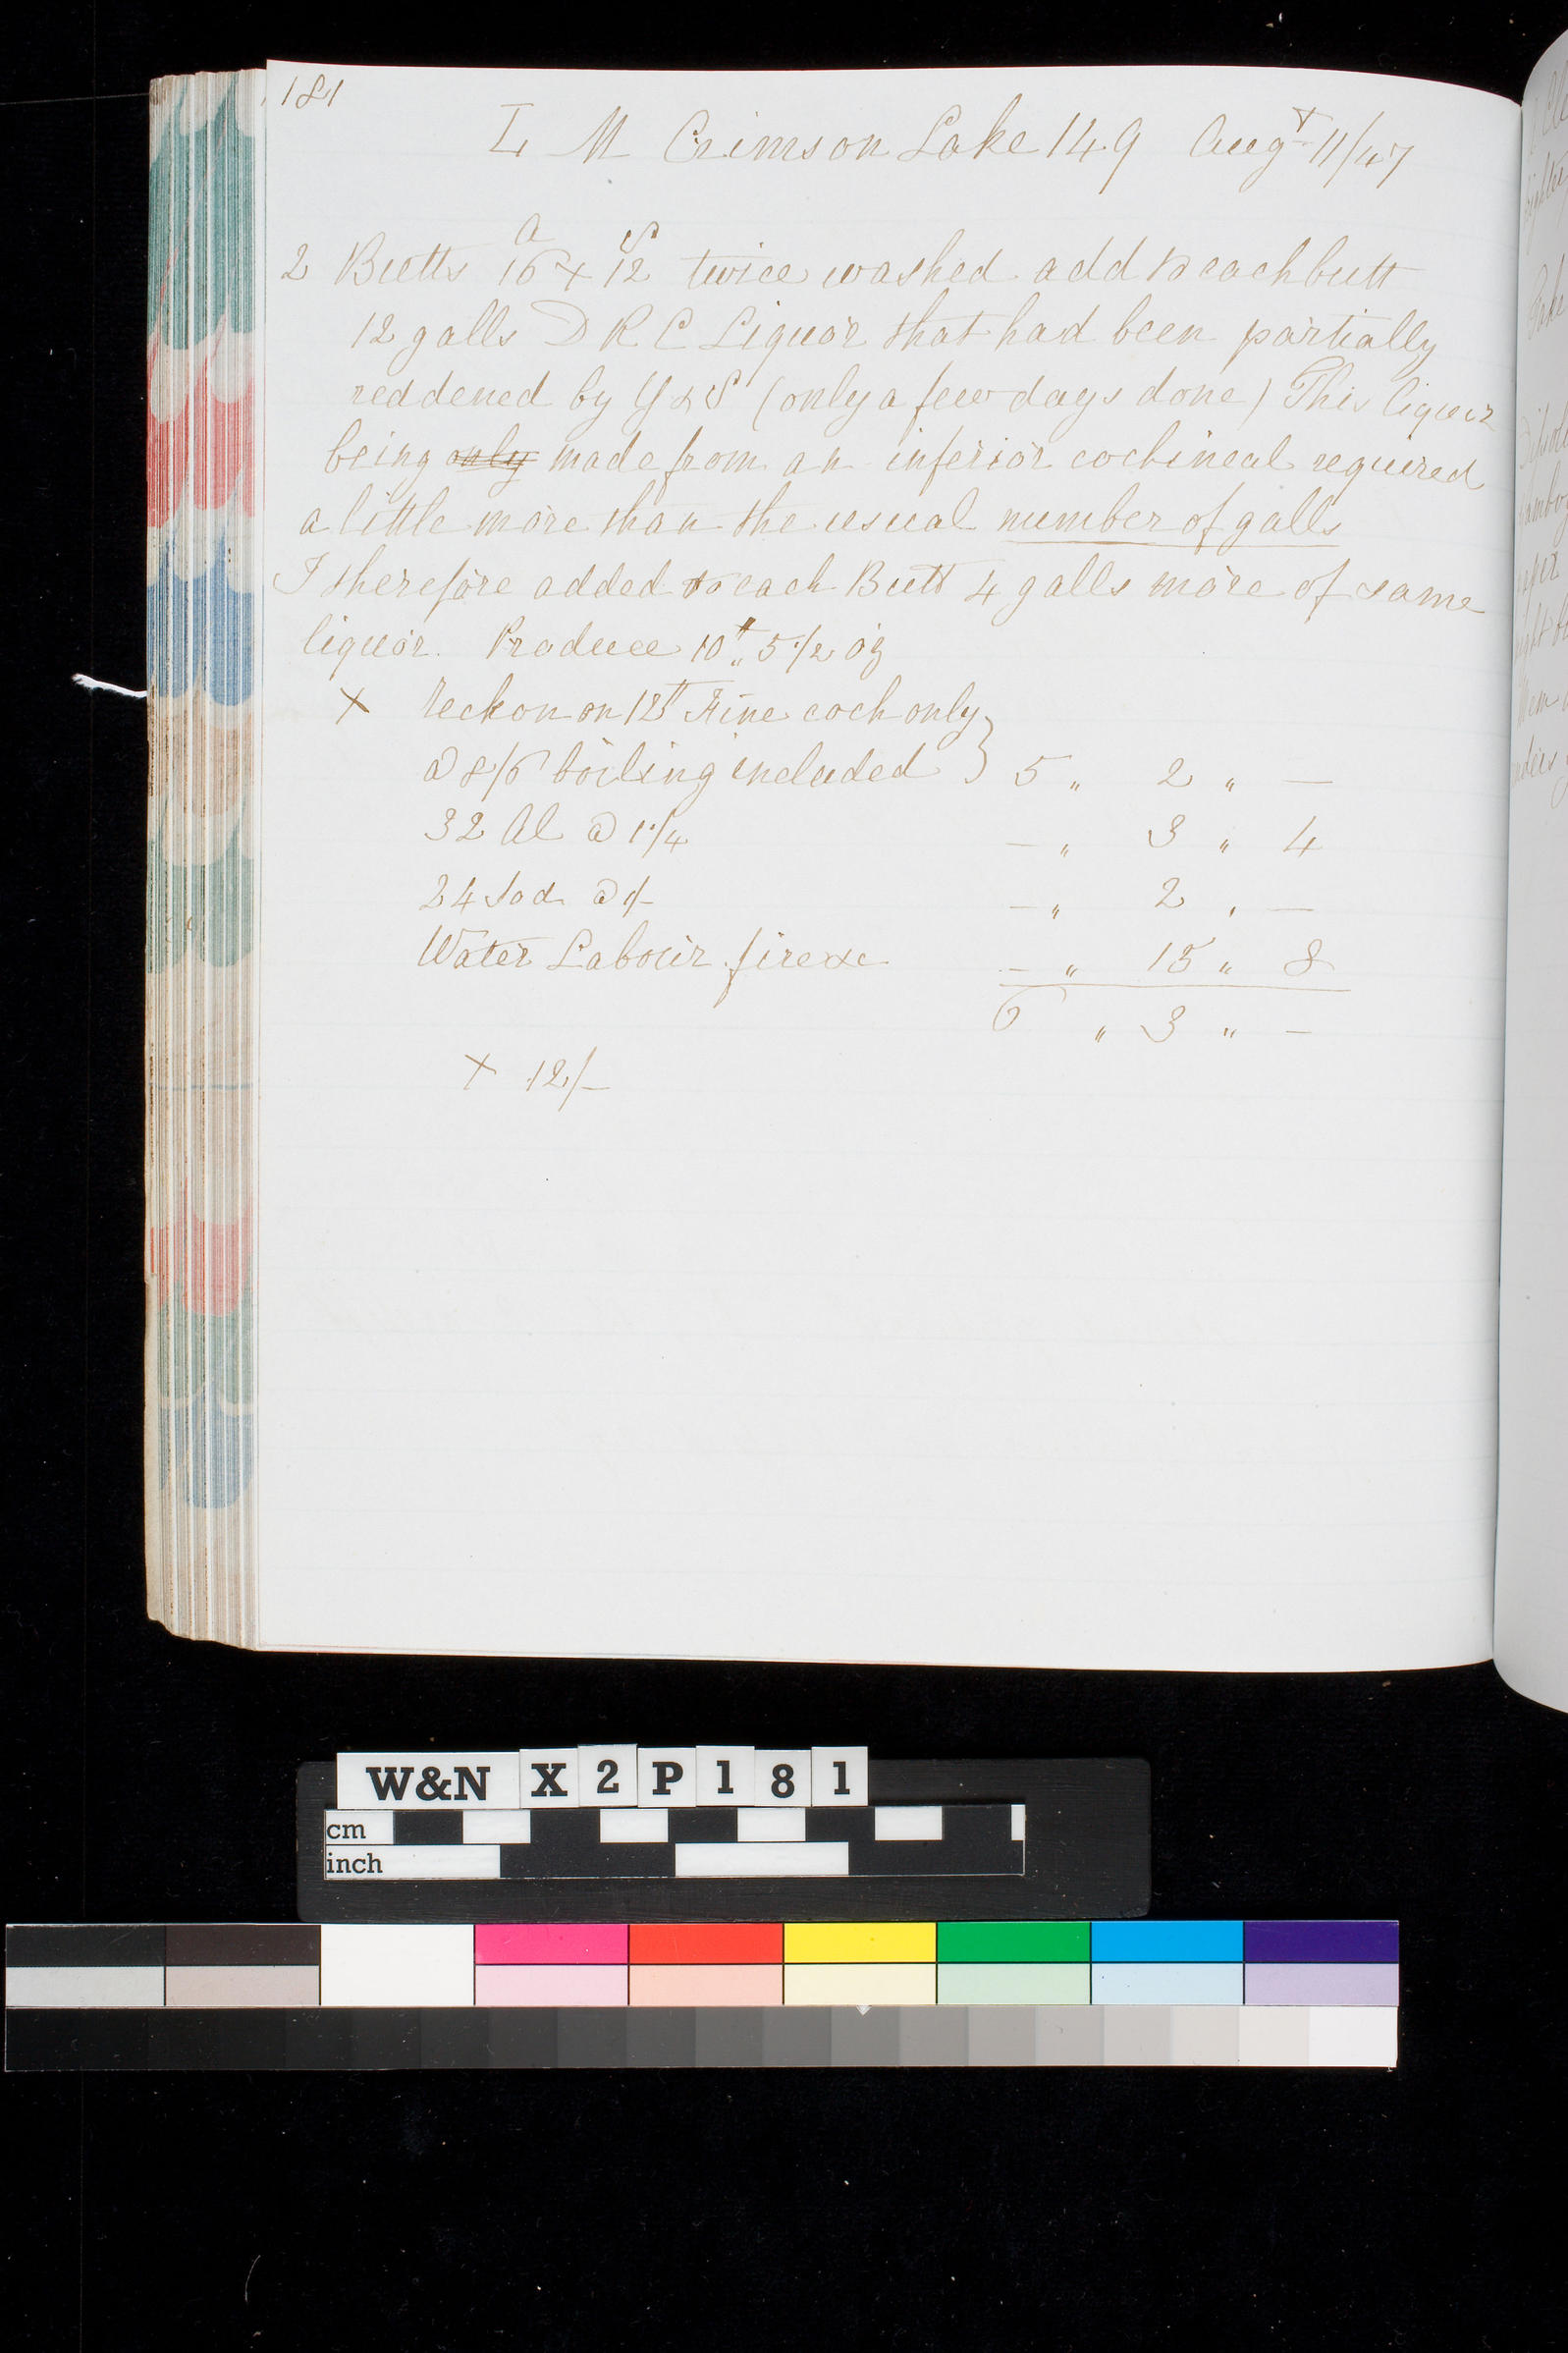 181
L M Crimson Lake 149 Augt 11/47
a S
2 Butts 16 + 12 twice washed add to each butt
12 galls D R C Liquor that had been partially
reddened by Y & S (only a few days done) This liquor
being only made from an inferior cochineal required
a little more than the usual number of galls
I therefore added to each Butt 4 galls more of same
liquor. Produce 10 lb „ 5 1/2 oz
× Reckon on 12 lb Fine coch only
@ 8/6 boiling included } 5 „ 2 „ —
32 Al @ 1 1/4 — „ 3 „ 4
24 Sod @ 1/- — „ 2 „ —
Water Labour fire &c — „ 15 „ 8
6 „ 3 „ —
× 12/-
W&N X 2 P 1 8 1
cm
inch